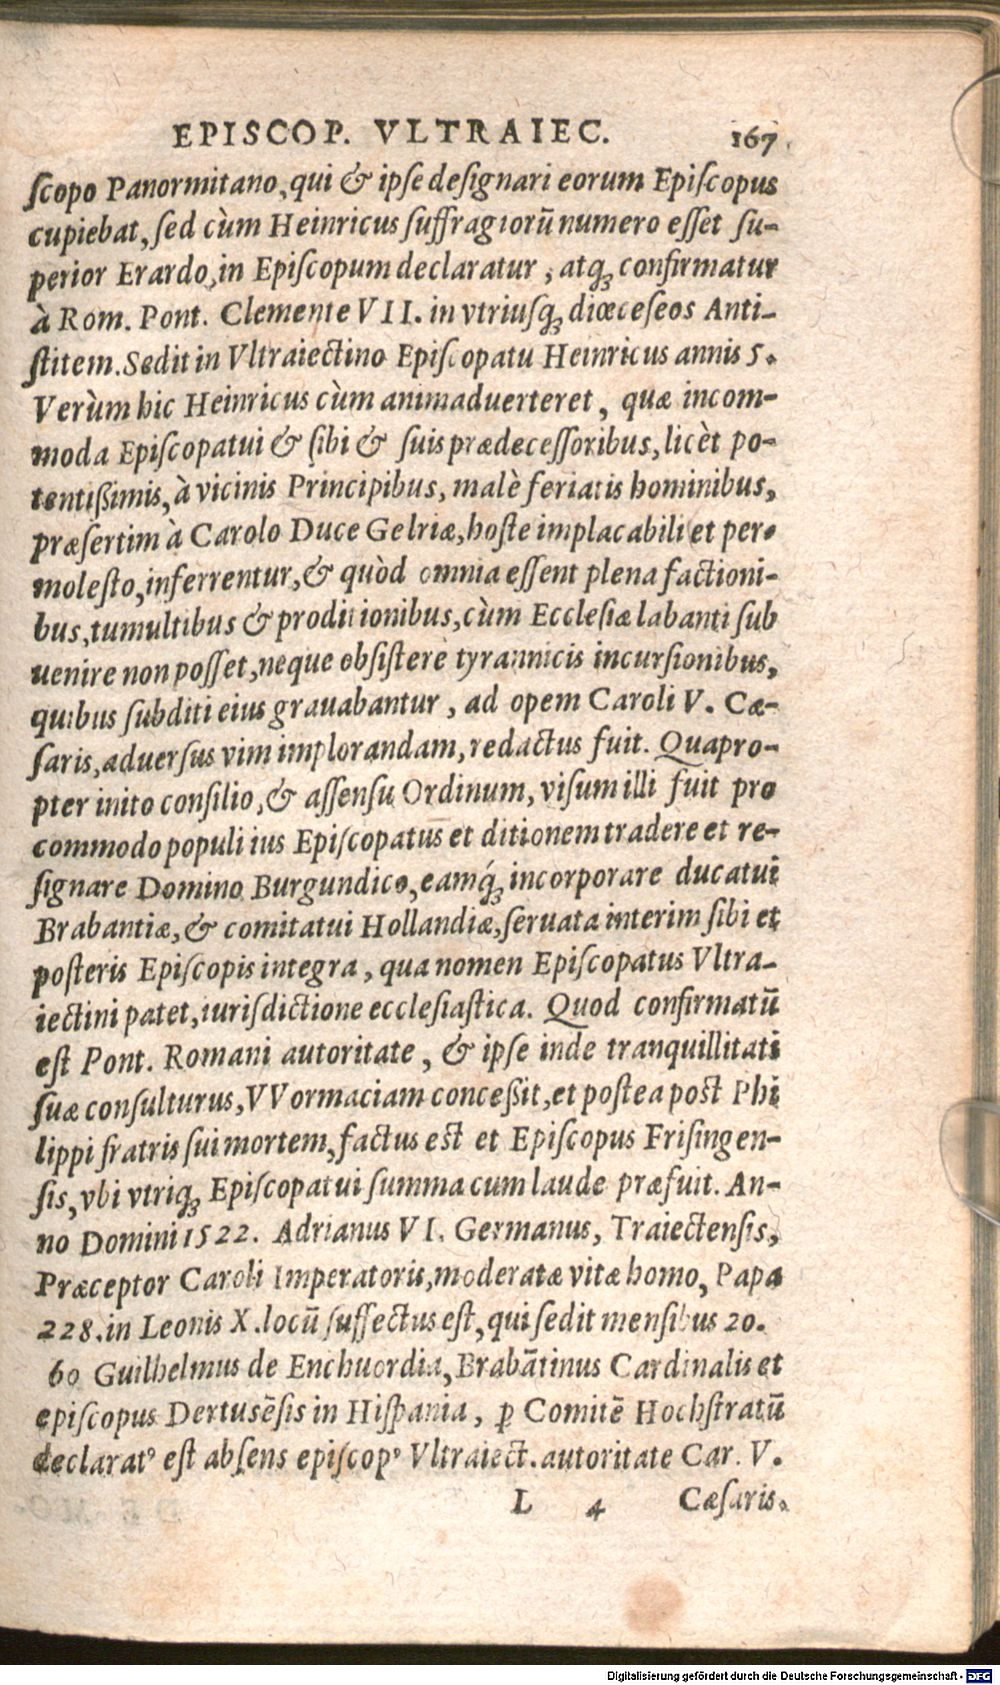 EPISCOP. VLTRAIEC. 167
ſcopo Panormitano, qui & ipſe deſignari eorum Epiſcopus
cupiebat, ſed cùm Heinricus ſuffragiorū numero eſſet ſu-
perior Erardo, in Epiſcopum declaratur, atq́ꝫ confirmatur
à Rom. Pont. Clemente VII. in vtriuſqꝫ diœceſeos Anti-
ſtitem. Sedit in Vltraiectino Epiſcopatu Heinricus annis 5.
Verùm hic Heinricus cùm animaduerteret, quæ incom-
moda Epiſcopatui & ſibi & ſuis prædeceſſoribus, licèt po-
tentißimis, à vicinis Principibus, malè feriatis hominibus,
præſertim à Carolo Duce Gelriæ, hoſte implacabili et per-
moleſto, inferrentur, & quòd omnia eſſent plena factioni-
bus, tumultibus & proditionibus, cùm Eccleſiæ labanti ſub
uenire non poſſet, neque obſiſtere tyrannicis incurſionibus,
quibus ſubditi eius grauabantur, ad opem Caroli V. Cæ-
ſaris, aduerſus vim implorandam, redactus fuit. Quapro-
pter inito conſilio, & aſſenſu Ordinum, viſum illi fuit pro
commodo populi ius Epiſcopatus et ditionem tradere et re-
ſignare Domino Burgundico, eamq́ꝫ incorporare ducatui
Brabantiæ, & comitatui Hollandiæ, ſeruata interim ſibi et
poſteris Epiſcopis integra, qua nomen Epiſcopatus Vltra-
iectini patet, iurisdictione eccleſiaſtica. Quod confirmatū
eſt Pont. Romani autoritate, & ipſe inde tranquillitati
ſuæ conſulturus, VVormaciam conceßit, et poſtea poſt Phi
lippi fratris ſui mortem, factus eſt et Epiſcopus Friſingen-
ſis, vbi vtriqꝫ Epiſcopatui ſumma cum laude præfuit. An-
no Domini 1522. Adrianus VI. Germanus, Traiectenſis,
Præceptor Caroli Imperatoris, moderatæ vitæ homo, Papa
228. in Leonis X. locū ſuffectus eſt, qui ſedit menſibus 20.
60 Guilhelmus de Enchuordia, Brabātinus Cardinalis et
epiſcopus Dertusēſis in Hiſpania, ꝑ Comitē Hochſtratū
declaratꝰ eſt abſens epiſcopꝰ Vltraiect. autoritate Car. V.
L 4 Cæſaris.
Digitalisierung gefördert durch die Deutsche Forschungsgemeinschaft - DFG